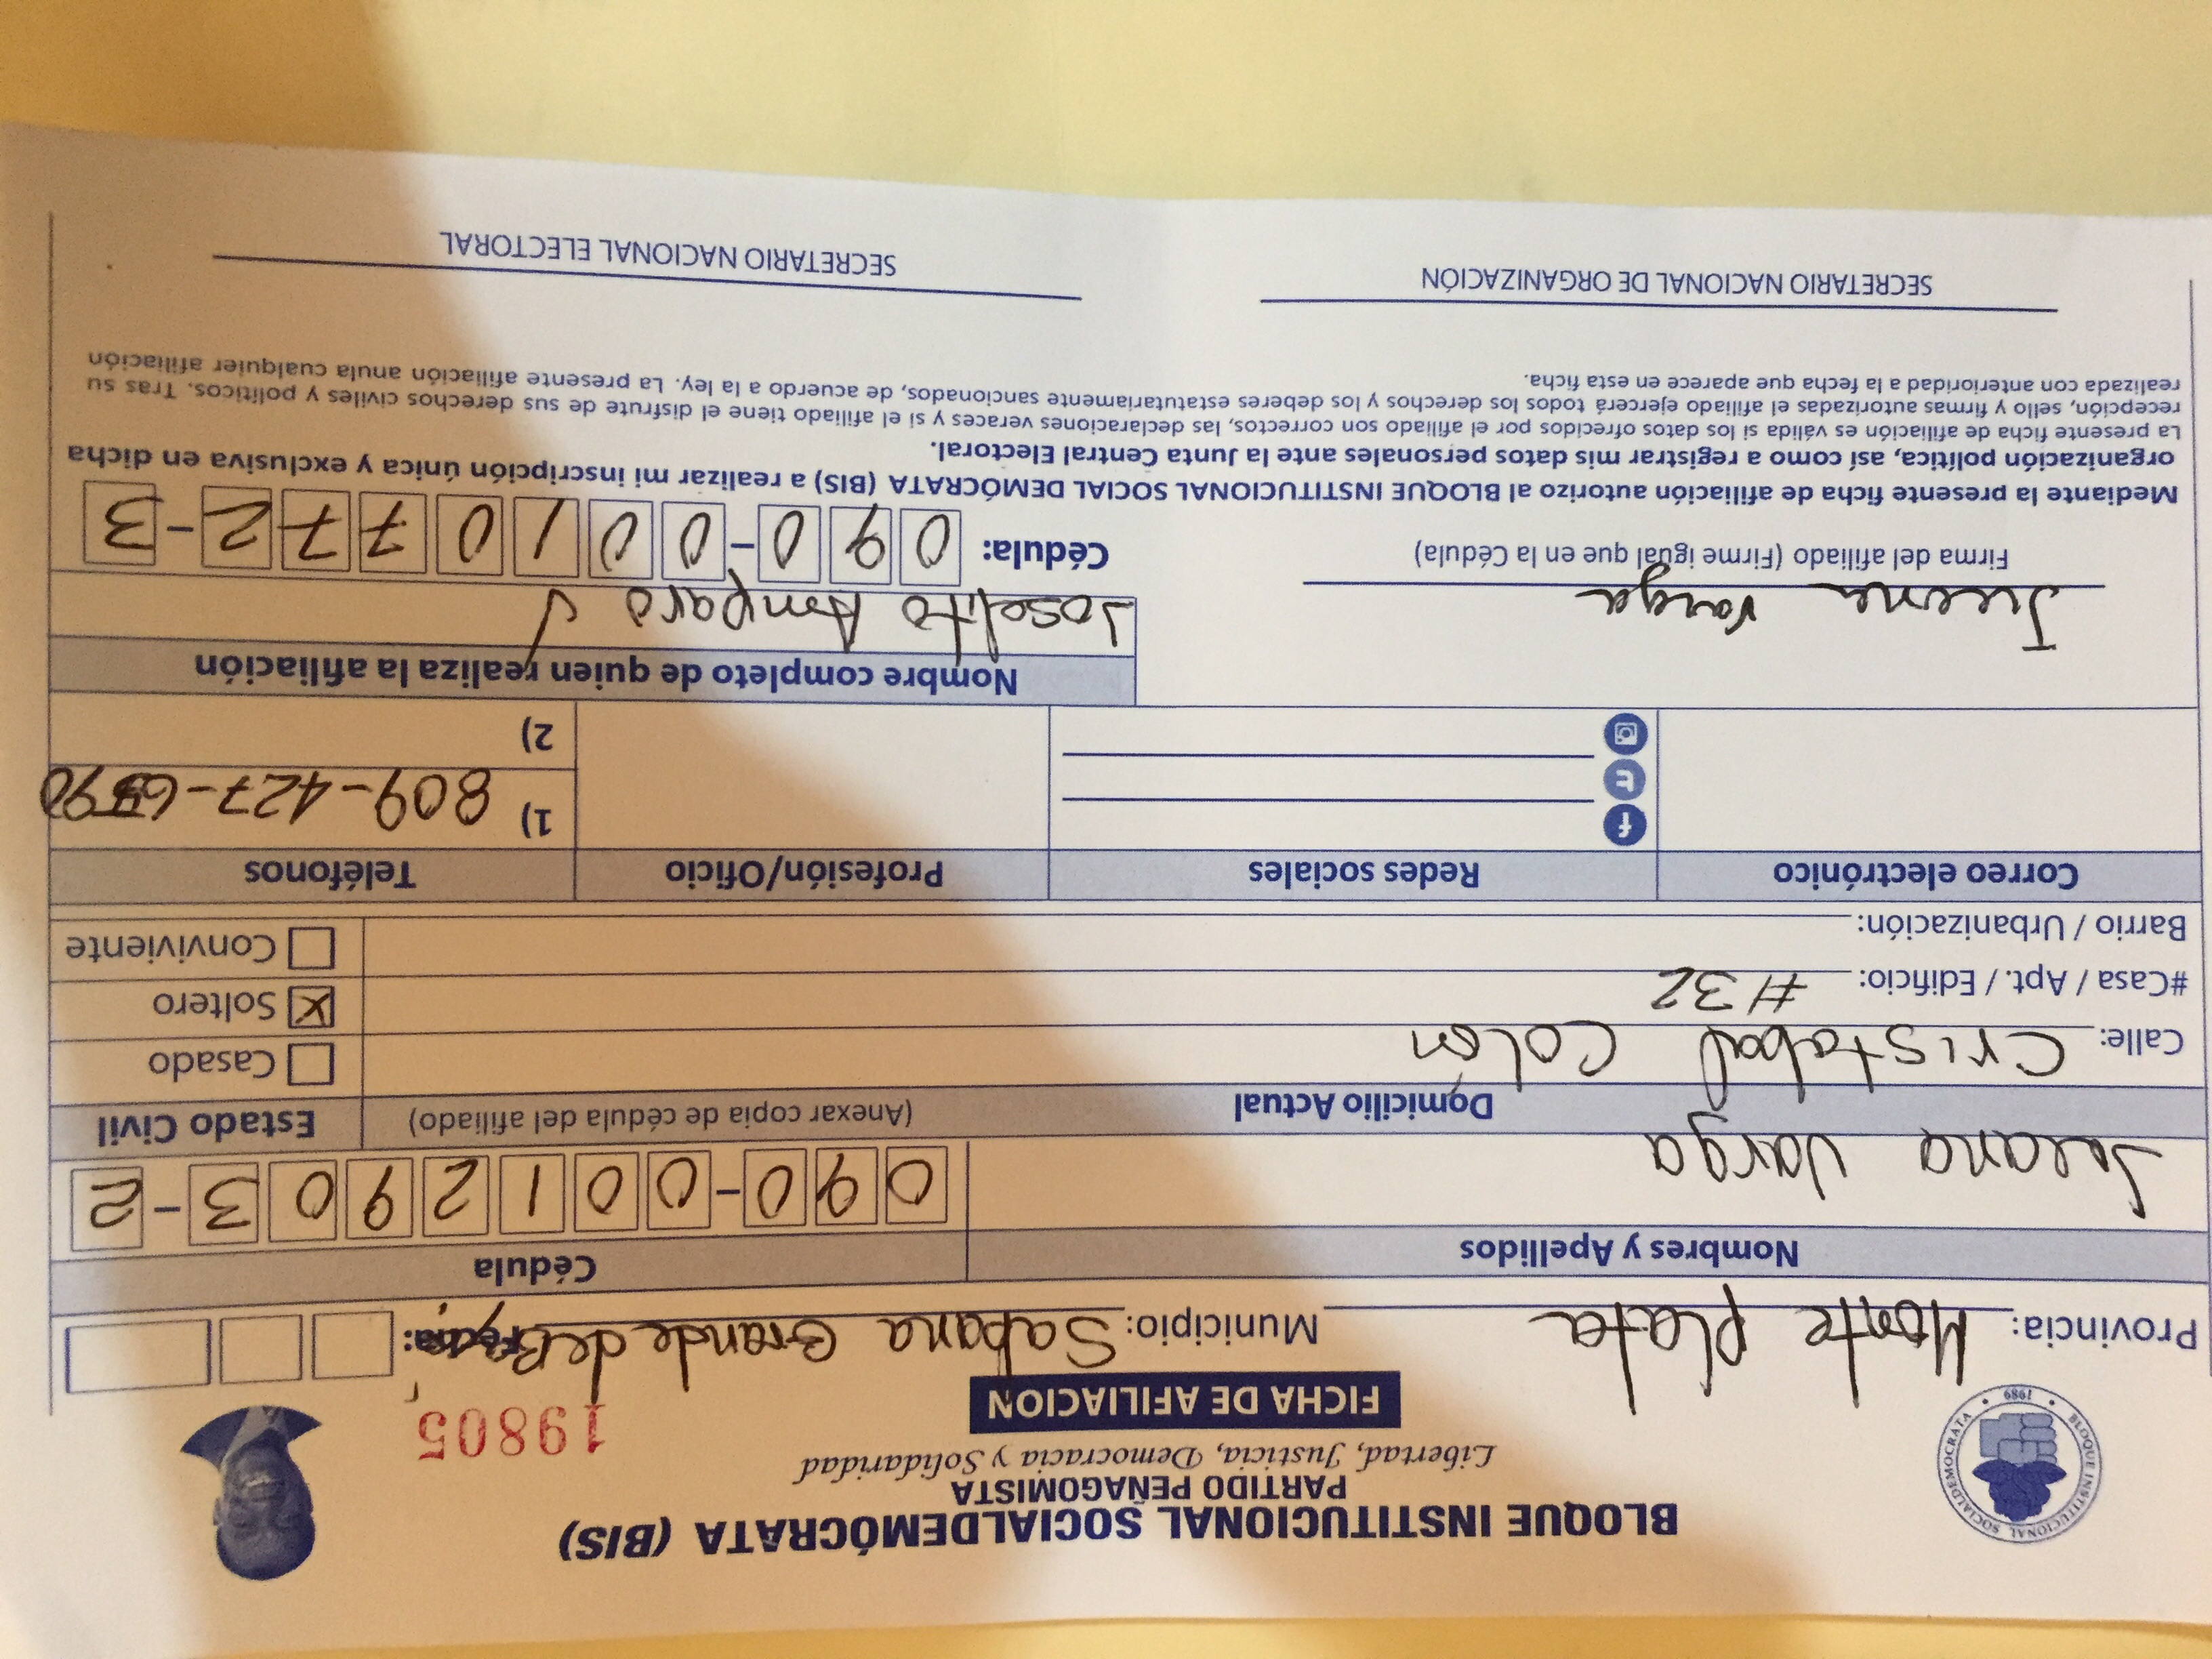 BLOQUE INSTITUCIONAL SOCIALDEMÓCRATA (BIS)
PARTIDO PEÑAGOMISTA
Libertad, Justicia, Democracia y Solidaridad
BLOQUE INSTITUCIONAL SOCIALDEMOCRATA
1989
FICHA DE AFILIACION
19805
Provincia: Monte plata Municipio: Sabana Grande de Fecha:
Nombres y Apellidos Cédula
Juana Varga 090-0012903-2
Domicilio Actual (Anexar copia de cédula del afiliado) Estado Civil
Calle: Cristobal Colón Casado
#Casa / Apt. / Edificio: #32 X Soltero
Barrio / Urbanización: Conviviente
Correo electrónico Redes sociales Profesión/Oficio Teléfonos
1) 809-427-
2)
Nombre completo de quien realiza la afiliación
Varga Joselito Amparo J
Firma del afiliado (Firme igual que en la Cédula) Cédula: 090-0010772-3
Mediante la presente ficha de afiliación autorizo al BLOQUE INSTITUCIONAL SOCIAL DEMÓCRATA (BIS) a realizar mi inscripción única y exclusiva en dicha
organización política, así como a registrar mis datos personales ante la Junta Central Electoral.
La presente ficha de afiliación es válida si los datos ofrecidos por el afiliado son correctos, las declaraciones veraces y si el afiliado tiene el disfrute de sus derechos civiles y políticos. Tras su
recepción, sello y firmas autorizadas el afiliado ejercerá todos los derechos y los deberes estatutariamente sancionados, de acuerdo a la ley. La presente afiliación anula cualquier afiliación
realizada con anterioridad a la fecha que aparece en esta ficha.
SECRETARIO NACIONAL DE ORGANIZACIÓN SECRETARIO NACIONAL ELECTORAL